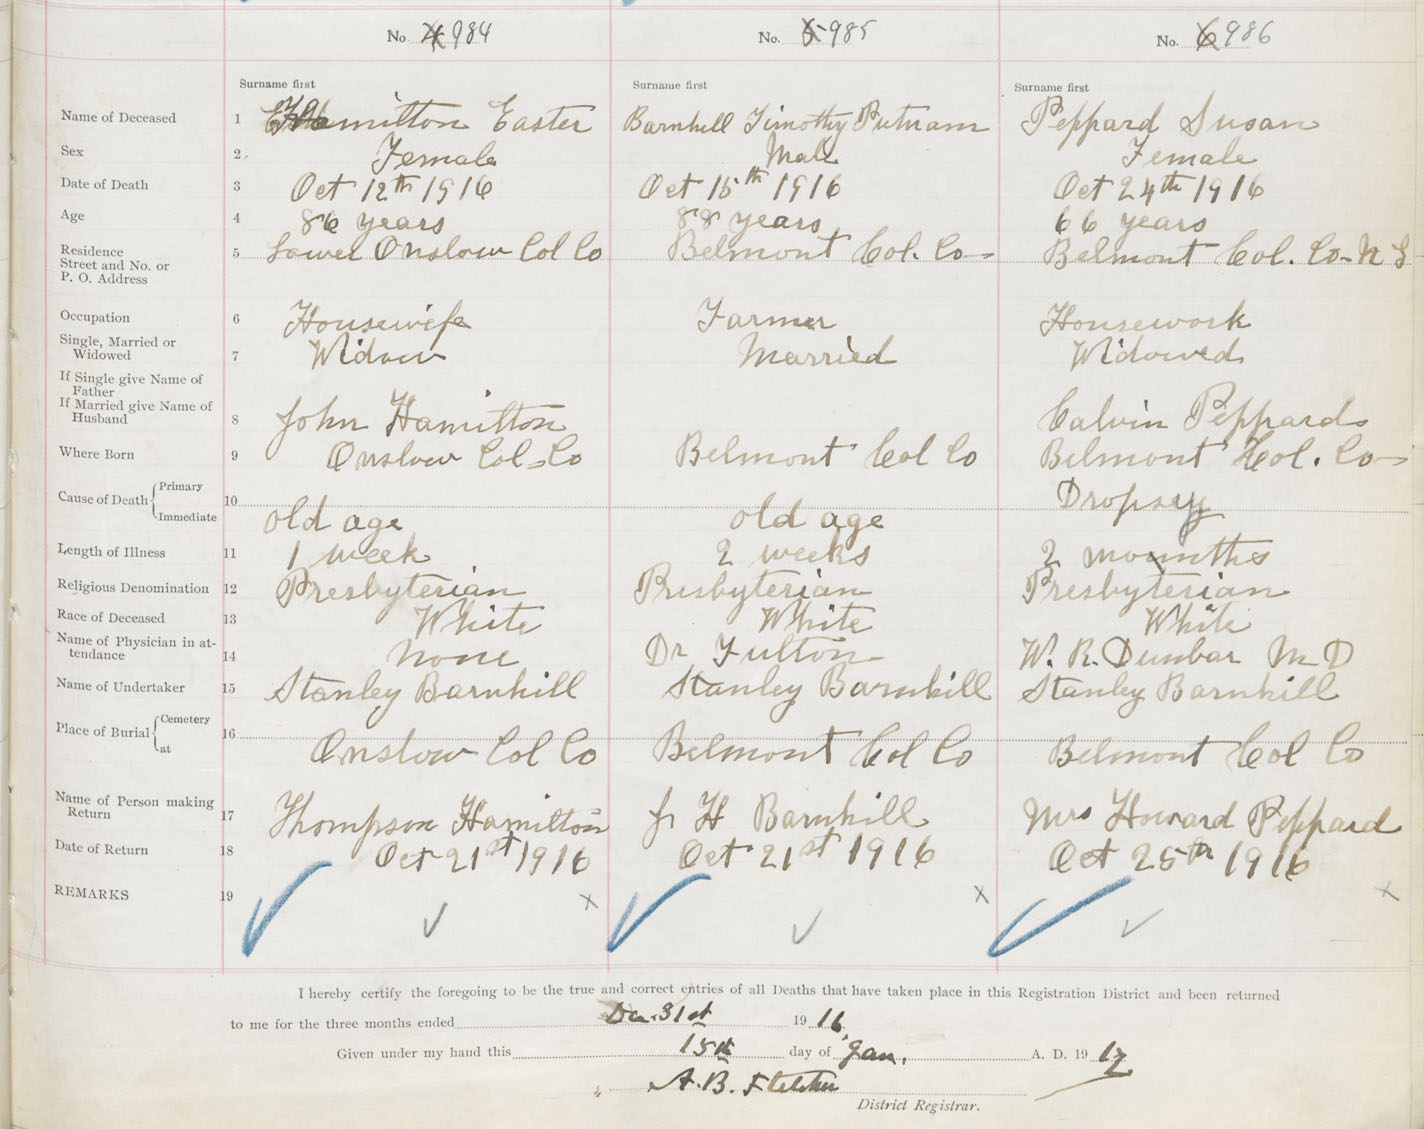 No. 4 984 No. 5 985 No. 6 986
Surname first Surname first Surname first
Name of Deceased 1 Hamilton Easter Barnhill Timothy Putnam Peppard Susan
Sex 2 Female Male Female
Date of Death 3 Oct 12th 1916 Oct 15th 1916 Oct 24th 1916
Age 4 86 years 88 years 66 years
Residence
Street and No. or
P. O. Address 5 Lower Onslow Col Co Belmont Col. Co- Belmont Col. Co- N S
Occupation 6 Housewife Farmer Housework
Single, Married or
Widowed 7 Widow Married Widowed
If Single give Name of
Father
If Married give Name of
Husband 8 John Hamilton Calvin Peppard
Where Born 9 Onslow Col-Co Belmont Col Co Belmont Col. Co-
Cause of Death Primary 10 Dropsey
Immediate old age old age
Length of Illness 11 1 week 2 weeks 2 mounths
Religious Denomination 12 Presbyterian Presbyterian Presbyterian
Race of Deceased 13 White White White
Name of Physician in at-
tendance 14 none Dr Fulton W. R. Dunbar M D
Name of Undertaker 15 Stanley Barnhill Stanley Barnhill Stanley Barnhill
Place of Burial Cemetery 16
at Onslow Col Co Belmont Col Co Belmont Col Co
Name of Person making
Return 17 Thompson Hamilton J H Barnhill Mrs Howard Peppard
Date of Return 18 Oct 21st 1916 Oct 21st 1916 Oct 25th 1916
REMARKS 19
I hereby certify the foregoing to be the true and correct entries of all Deaths that have taken place in this Registration District and been returned
to me for the three months ended Dec. 31st 19 16
Given under my hand this 15th day of Jan. A. D. 19 17
A. B. Fletcher
District Registrar.